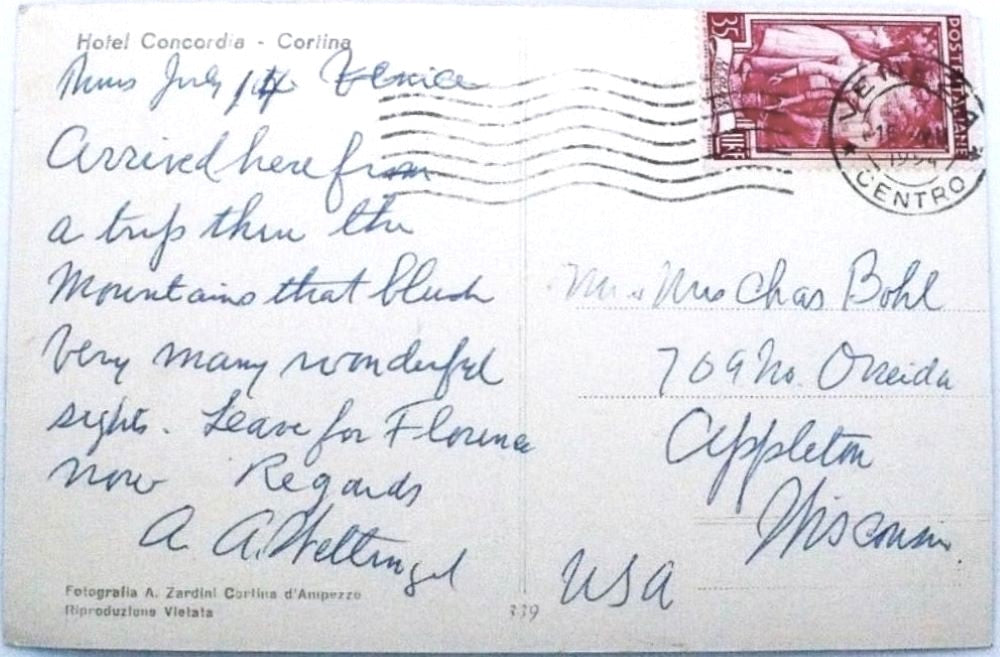 Hotel Concordia - Cortina
Thurs July 1st Venice
Arrived here from
a trip thru the
Mountains that
Very many wonderful
sights. Leave for Florence
now Regards
A. A. Wettengel
Fotografia A. Zardini Cortina d'Ampezzo
Riproduzione Vietata
339
35
LIRE
POSTE ITALIANE
VENEZIA
1954
CENTRO
Mr & Mrs Chas Bohl
709 No. Oneida
Appleton
Wisconsin
USA